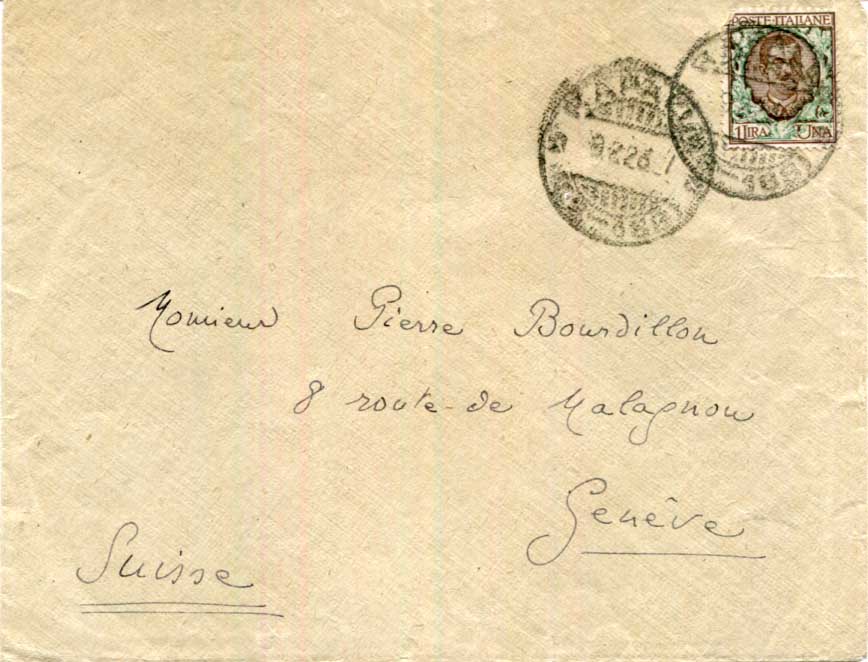 POSTE·ITALIANE
1 LIRA UNA
Monsieur Pierre Bourdillon
8 route de Malagnou
Genève
Suisse